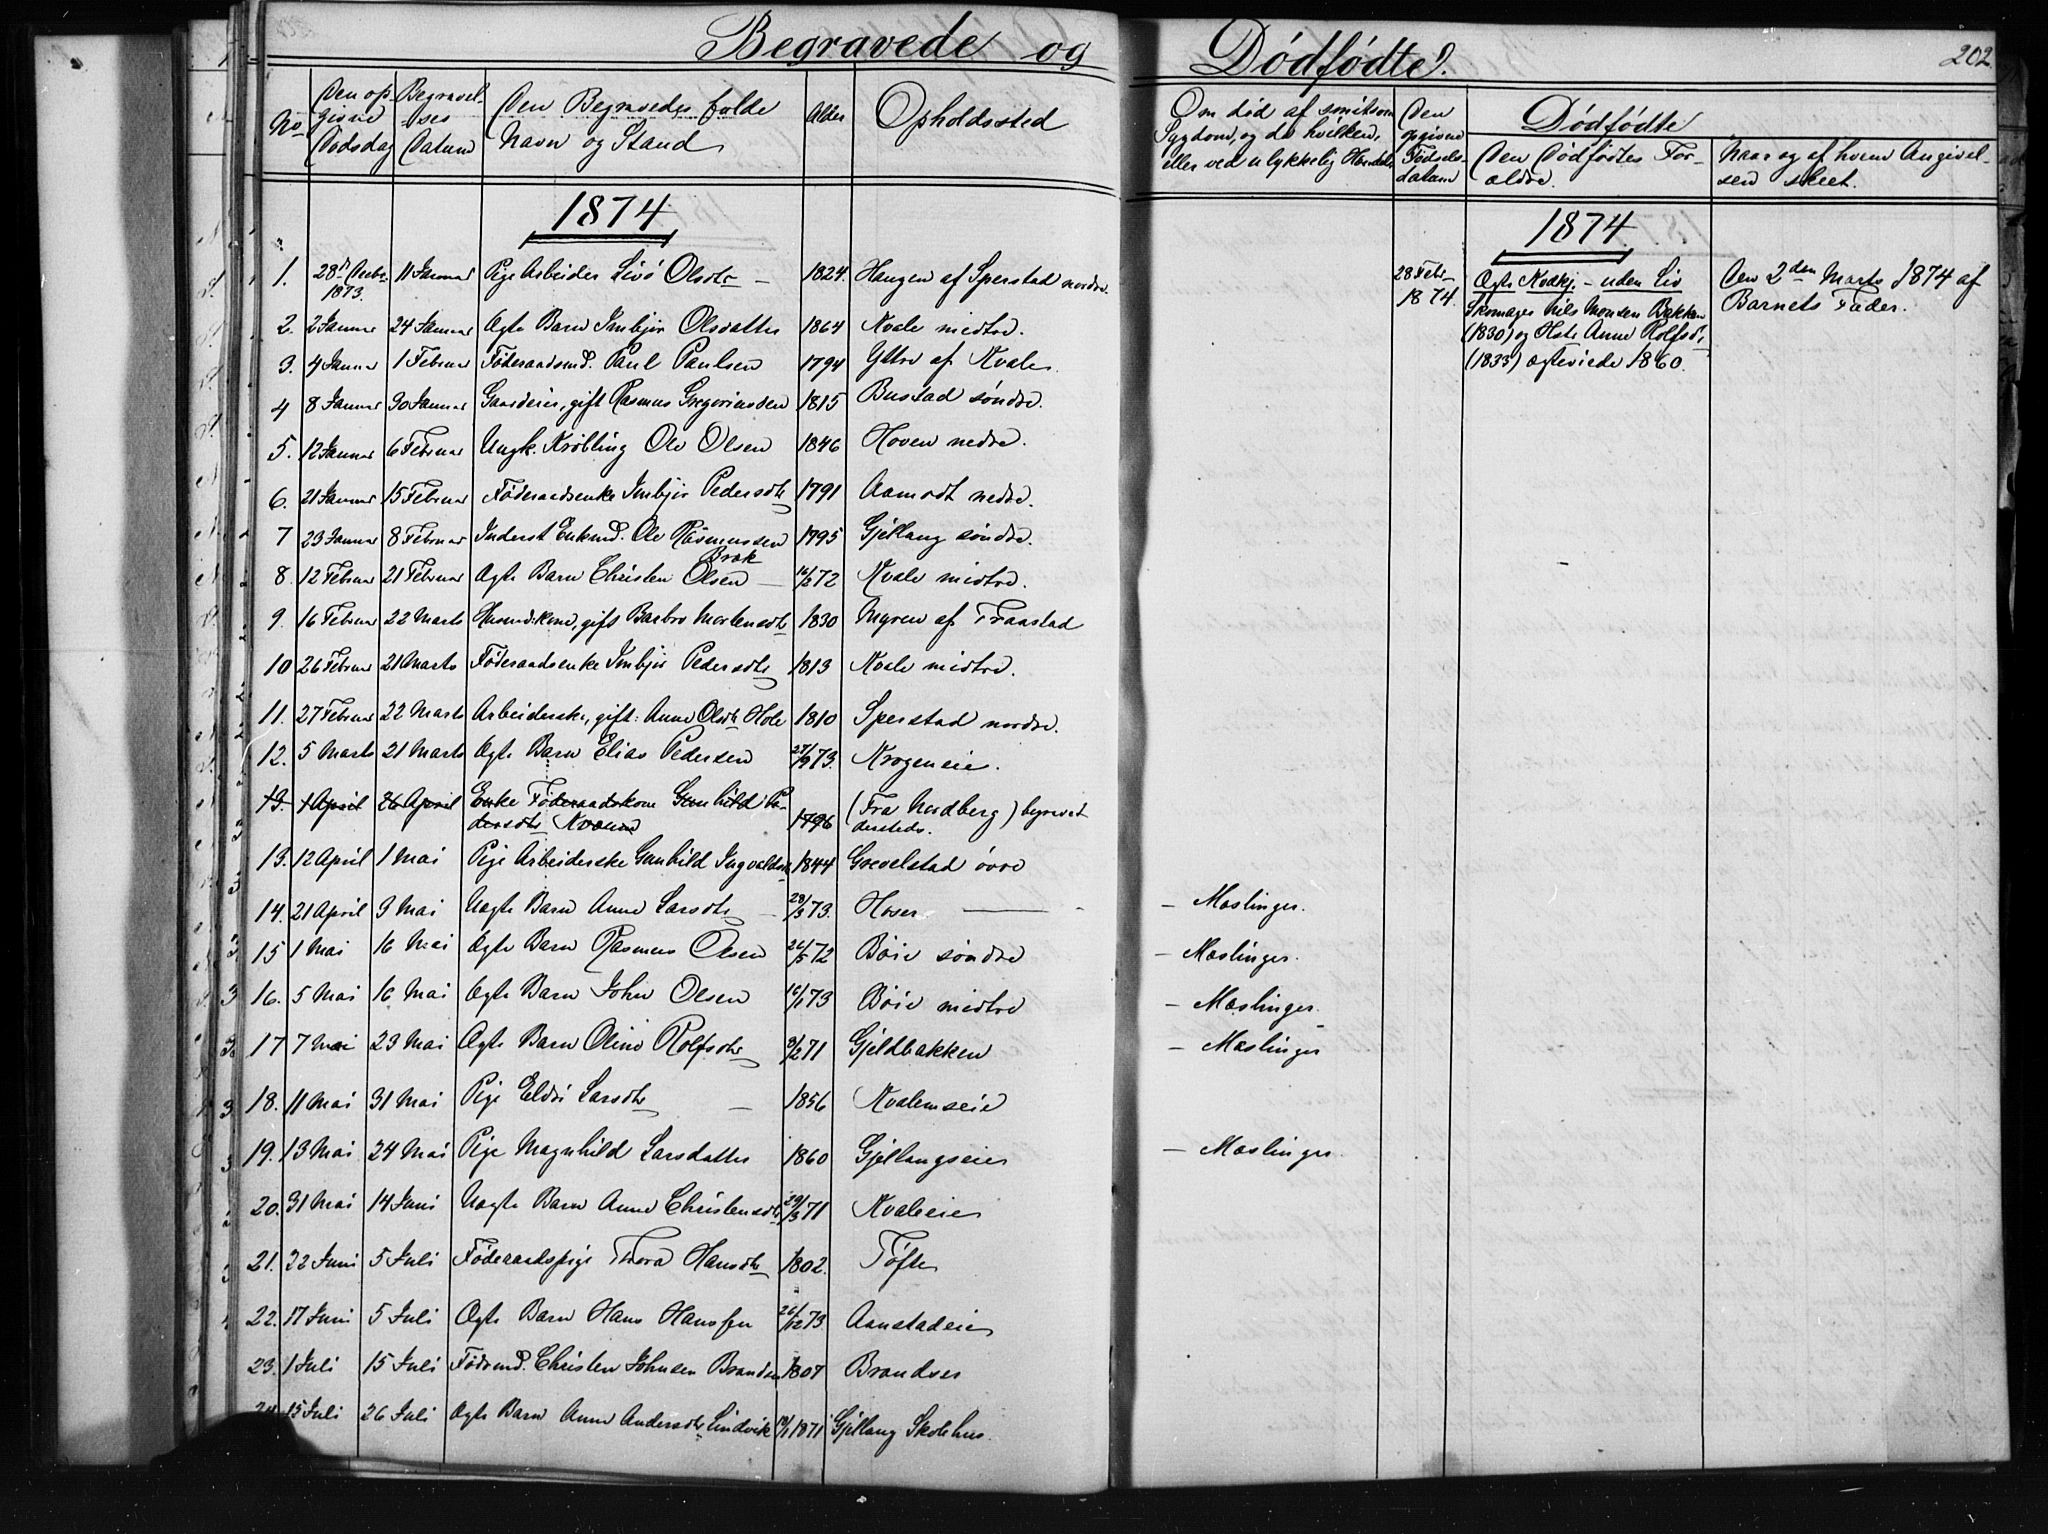 Begravede og
Dødfødte.
202.
No
Den opgivne Dødsdag
Begravelses Datum
Den Begravedes fulde Navn og Stand
Alder
Opholdssted
Om død af smitsom Sygdom, og da hvilken, eller ved ulykkelig Hændelse
Den opgivne Fødselsdatum
Dødfødte
Den Dødfødtes Forældre.
Naar og af hvem Angivelsen skeet.
1874
1874
1. 28de Decbr 1873. 11 Januar Pige Arbeider Livø Olsdtr - 1824. Haugen af Sperstad nordre.
28 Febr 1874. Ægte Kvdkj. - uden Liv
Skomager Nils Monsen Bakken
(1830) og Hstr Anne Rolfsd.
(1833) ægteviede 1860.
Den 2den Marts 1874 af
Barnets Fader.
2. 2 Januar 24 Januar Ægte Barn Imbjør Olsdatter 1864 Kvale midtre.
3. 4 Januar 1 Februar Føderaadsmd. Paul Paulsen 1794 Yttre af Kvale.
4 8 Januar 30 Januar Gaardeier, gift Rasmus Gregoriussen 1815 Bustad søndre.
5. 12 Januar 6 Februar Ungk. Krøbling Ole Olsen 1846 Hoven nedre.
6. 21 Januar 15 Februar Føderaadsenke Imbjør Pedersdtr 1791 Aamodt nedre.
7 23 Januar 8 Februar Inderst Enkmd. Ole Rasmussen 1795 Gjellang søndre.
Brak
8. 12 Februar 21 Februar Ægte Barn Christen Olsen - 16/2 72 Kvale midtre.
9. 16 Februar 22 Marts Husmdskone, gift Barbro Mortensdtr 1830 Myren af Fraastad
10 26 Februar 21 Marts Føderaadsenke Imbjør Pedersdtr 1813 Kvale midtre.
11. 27 Februar 22 Marts Arbeiderske, gift: Anne Olsdtr Hole 1810 Sperstad nordre.
12. 5 Marts 21 Marts Ægte Barn Elias Pedersen 27/9 73. Krogeneie.
13. 1 April 26 April Enke Føderaadskone Gunhild Pedersdtr 1796 (Fra Nordberg) begravet dersteds.
13. 12 April 1 Mai Pige Arbeiderske Gunhild Ingvaldsd 1844 Grevelstad øvre
14. 21 April 9 Mai Uægte Barn Anne Larsdtr - 28/3 73. Hoser - Mæslinger.
15 1 Mai 16 Mai Ægte Barn Rasmus Olsen 26/5 72 Bøie søndre - Mæslinger.
16. 5 Mai 16 Mai Ægte Barn John Olsen 16/1 73 Bøie midtre - Mæslinger.
17 7 Mai 23 Mai Ægte Barn Oline Rolfsdtr 3/2 71 Gjeldbakken - Mæslinger
18. 11 Mai 31 Mai Pige Eldri Larsdtr - 1856 Kvalemseie
19. 13 Mai 24 Mai Pige Magnhild Larsdatter 1860 Gjellangseie - Mæslinger.
20. 31 Mai 14 Juni Uægte Barn Anne Christensdtr 29/3 71 Kvaleeie
21. 22 Juni 5 Juli Føderaadspige Thora Hansdtr 1802. Tøfte
22. 17 Juni 5 Juli Ægte Barn Hans Hanssen 26/12 73. Aanstadeie
23. 1 Juli 15 Juli Fødrmd. Christen Johnsen Brandse 1807 Brandser
24 15 Juli 26 Juli Ægte Barn Anne Andersdtr Lindvik 1871 Gjellang Skolehus.